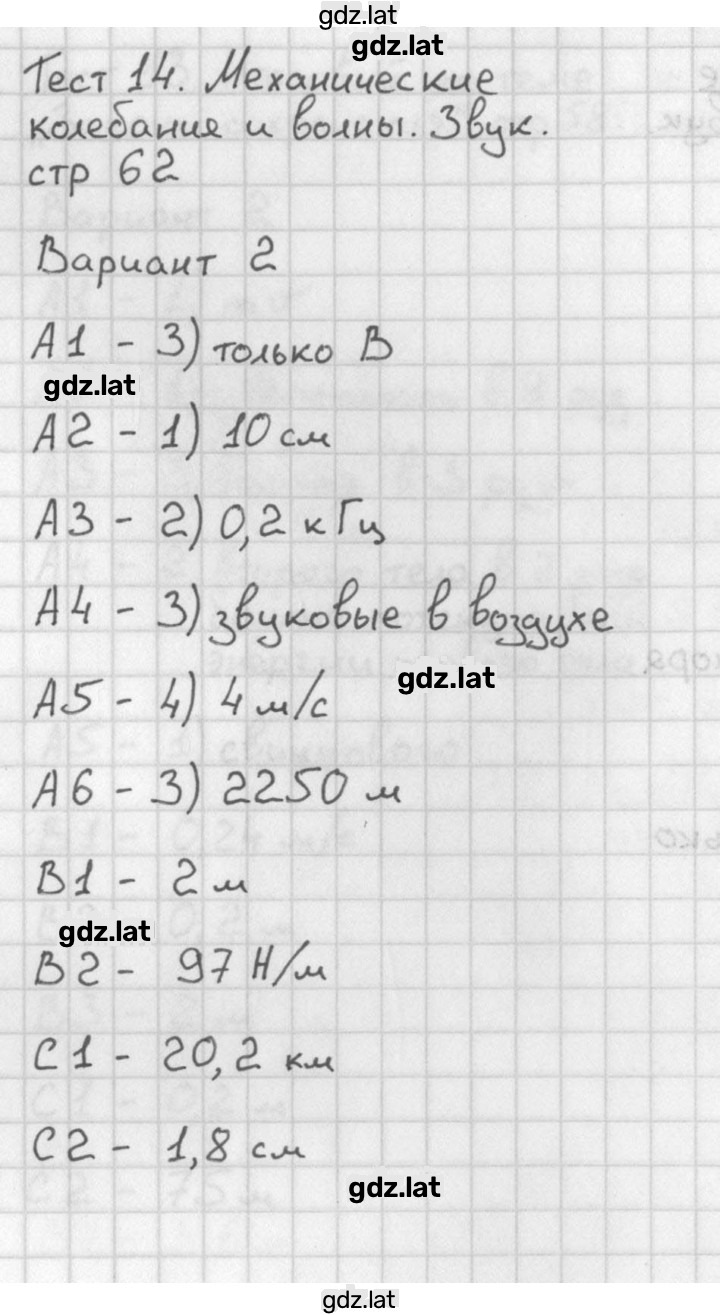 gdz.lat
gdz.lat
Тест 14. Механические
колебания и волны. Звук.
стр 62
Вариант 2
А1 - 3) только В
gdz.lat
А2 - 1) 10 см
А3 - 2) 0,2 кГц
А4 - 3) звуковые в воздухе
gdz.lat
А5 - 4) 4 м/с
А6 - 3) 2250 м
В1 - 2 м
gdz.lat
В2 - 97 Н/м
С1 - 20,2 км
С2 - 1,8 см
gdz.lat
gdz.lat